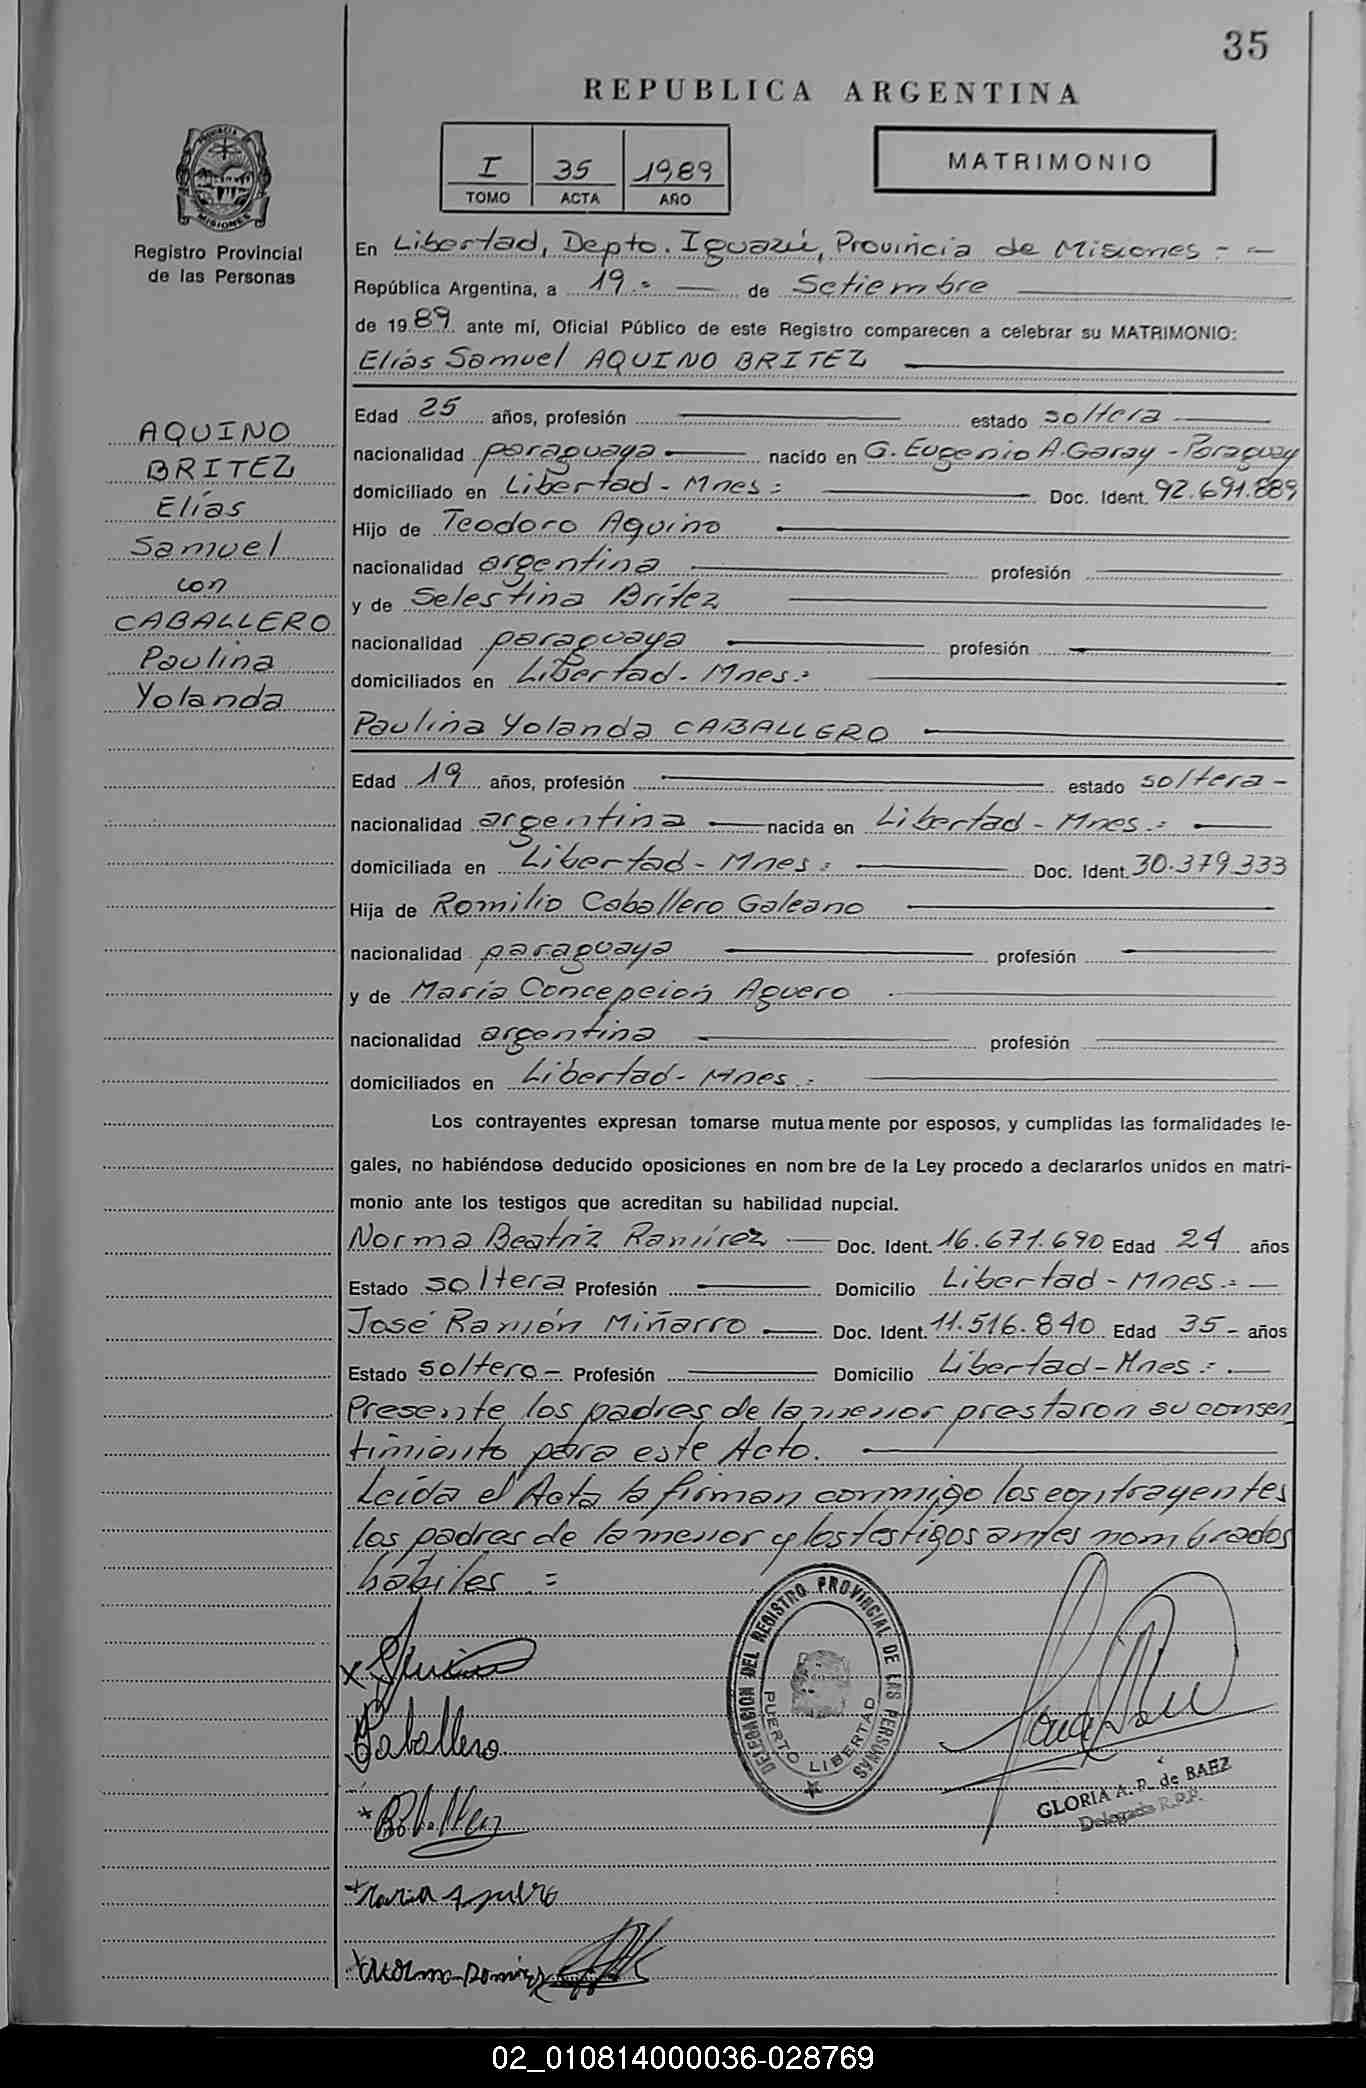 35
REPUBLICA ARGENTINA
I 35 1989
TOMO ACTA AÑO
MATRIMONIO
PROVINCIA DE
MISIONES
Registro Provincial
de las Personas
AQUINO
BRITEZ
Elías
Samuel
con
CABALLERO
Paulina
Yolanda
En Libertad, Depto. Iguazú, Provincia de Misiones - -
República Argentina, a 19.- de Setiembre
de 1989 ante mí, Oficial Público de este Registro comparecen a celebrar su MATRIMONIO:
Elías Samuel AQUINO BRITEZ
Edad 25 años, profesión estado soltera
nacionalidad paraguaya nacido en G. Eugenio A. Garay - Paraguay
domiciliado en Libertad - Mnes.= Doc. Ident. 92.691.889
Hijo de Teodoro Aquino
nacionalidad argentina profesión
y de Selestina Brítez
nacionalidad paraguaya profesión
domiciliados en Libertad - Mnes.=
Paulina Yolanda CABALLERO
Edad 19 años, profesión estado soltera -
nacionalidad argentina nacida en Libertad - Mnes.=
domiciliada en Libertad - Mnes= Doc. Ident. 30.379.333
Hija de Romilio Caballero Galeano
nacionalidad paraguaya profesión
y de María Concepción Aguero
nacionalidad argentina profesión
domiciliados en Libertad - Mnes.=
Los contrayentes expresan tomarse mutuamente por esposos, y cumplidas las formalidades le-
gales, no habiéndose deducido oposiciones en nombre de la Ley procedo a declararlos unidos en matri-
monio ante los testigos que acreditan su habilidad nupcial.
Norma Beatriz Ramírez Doc. Ident. 16.671.690 Edad 24 años
Estado soltera Profesión Domicilio Libertad - Mnes.=
José Ramón Miñarro Doc. Ident. 11.516.840 Edad 35 - años
Estado soltero - Profesión Domicilio Libertad - Mnes.=
Presente los padres de la menor prestaron su consen
timiento para este Acto.
Leída el Acta la firman conmigo los contrayentes
los padres de la menor y los testigos antes nombrados
hábiles . =
DELEGACION DEL REGISTRO PROVINCIAL DE LAS PERSONAS
PUERTO LIBERTAD
Caballero
GLORIA A. P. de BAEZ
Delegada R.P.P.
Maria Aguero
Norma Ramirez
02_010814000036-028769